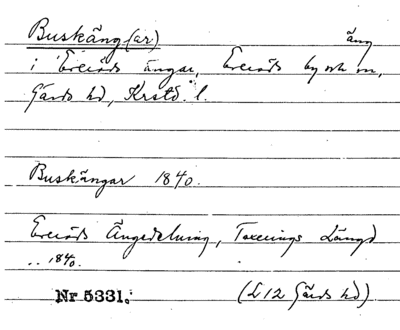 Buskäng(ar) äng
i Everöds ängar, Everöds by och sn,
Gärds hd, Krstd. l.
Buskängar 1840.
Everöds Ängedelning, Taxerings Längd
.. 1840.
Nr 5331. (L12 Gärds hd)